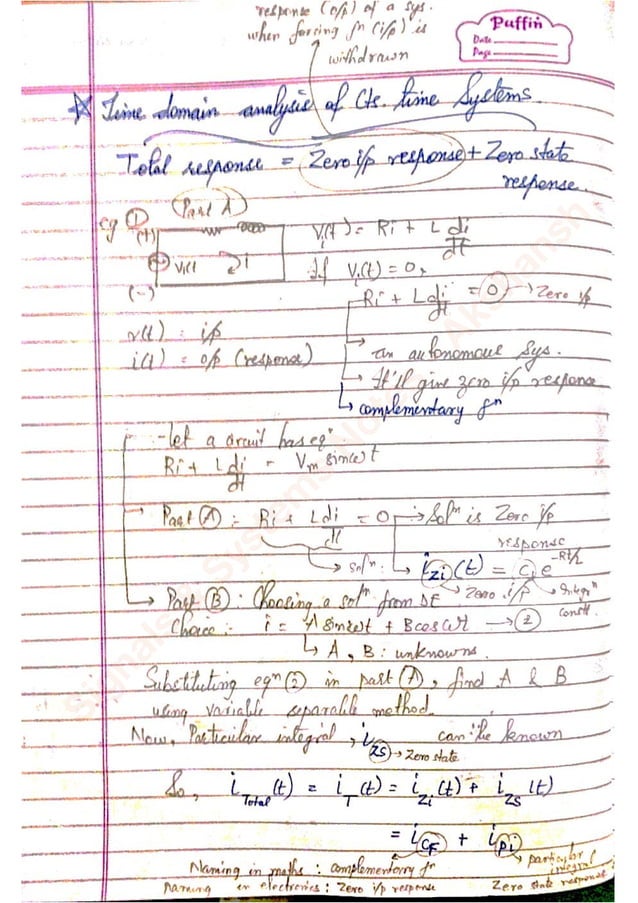 response (o/p) of a sys.
when forcing fⁿ (i/p) is
withdrawn
Puffin
Date
Page
Time domain analysis of Cts. time Systems.
Total response = Zero i/p response + Zero state
response.
Part A
eg ①
(+)
V(t)
i
(-)
V(t) = Ri + L di/dt
If V(t) = 0,
Ri + L di/dt = 0 → Zero i/p
v(t) = i/p
i(t) = o/p (response)
→ an autonomous sys.
→ It'll give zero i/p response
→ complementary fⁿ
- Let a circuit has eqⁿ
Ri + L di/dt = Vm sin ωt
→ Part Ⓐ : Ri + L di/dt = 0 → Solⁿ is Zero i/p
response
→ Solⁿ : → i_zi(t) = c₁ e^-Rt/L
Zero i/p
Integrⁿ
const.
→ Part Ⓑ : Choosing a solⁿ from DE
Choice : i = A sin ωt + B cos ωt → ②
→ A, B : unknowns.
Substituting eqⁿ ② in part Ⓐ, find A & B
using variable separable method.
Now, Particular integral, i_zs can be known
→ Zero state
So, i_Total(t) = i_T(t) = i_zi(t) + i_zs(t)
= i_CF + i_pi
particular
integral
Naming in maths : complementary fⁿ
Naming in electronics : Zero i/p response
Zero state response
Signals & Systems Notes Akdhansh